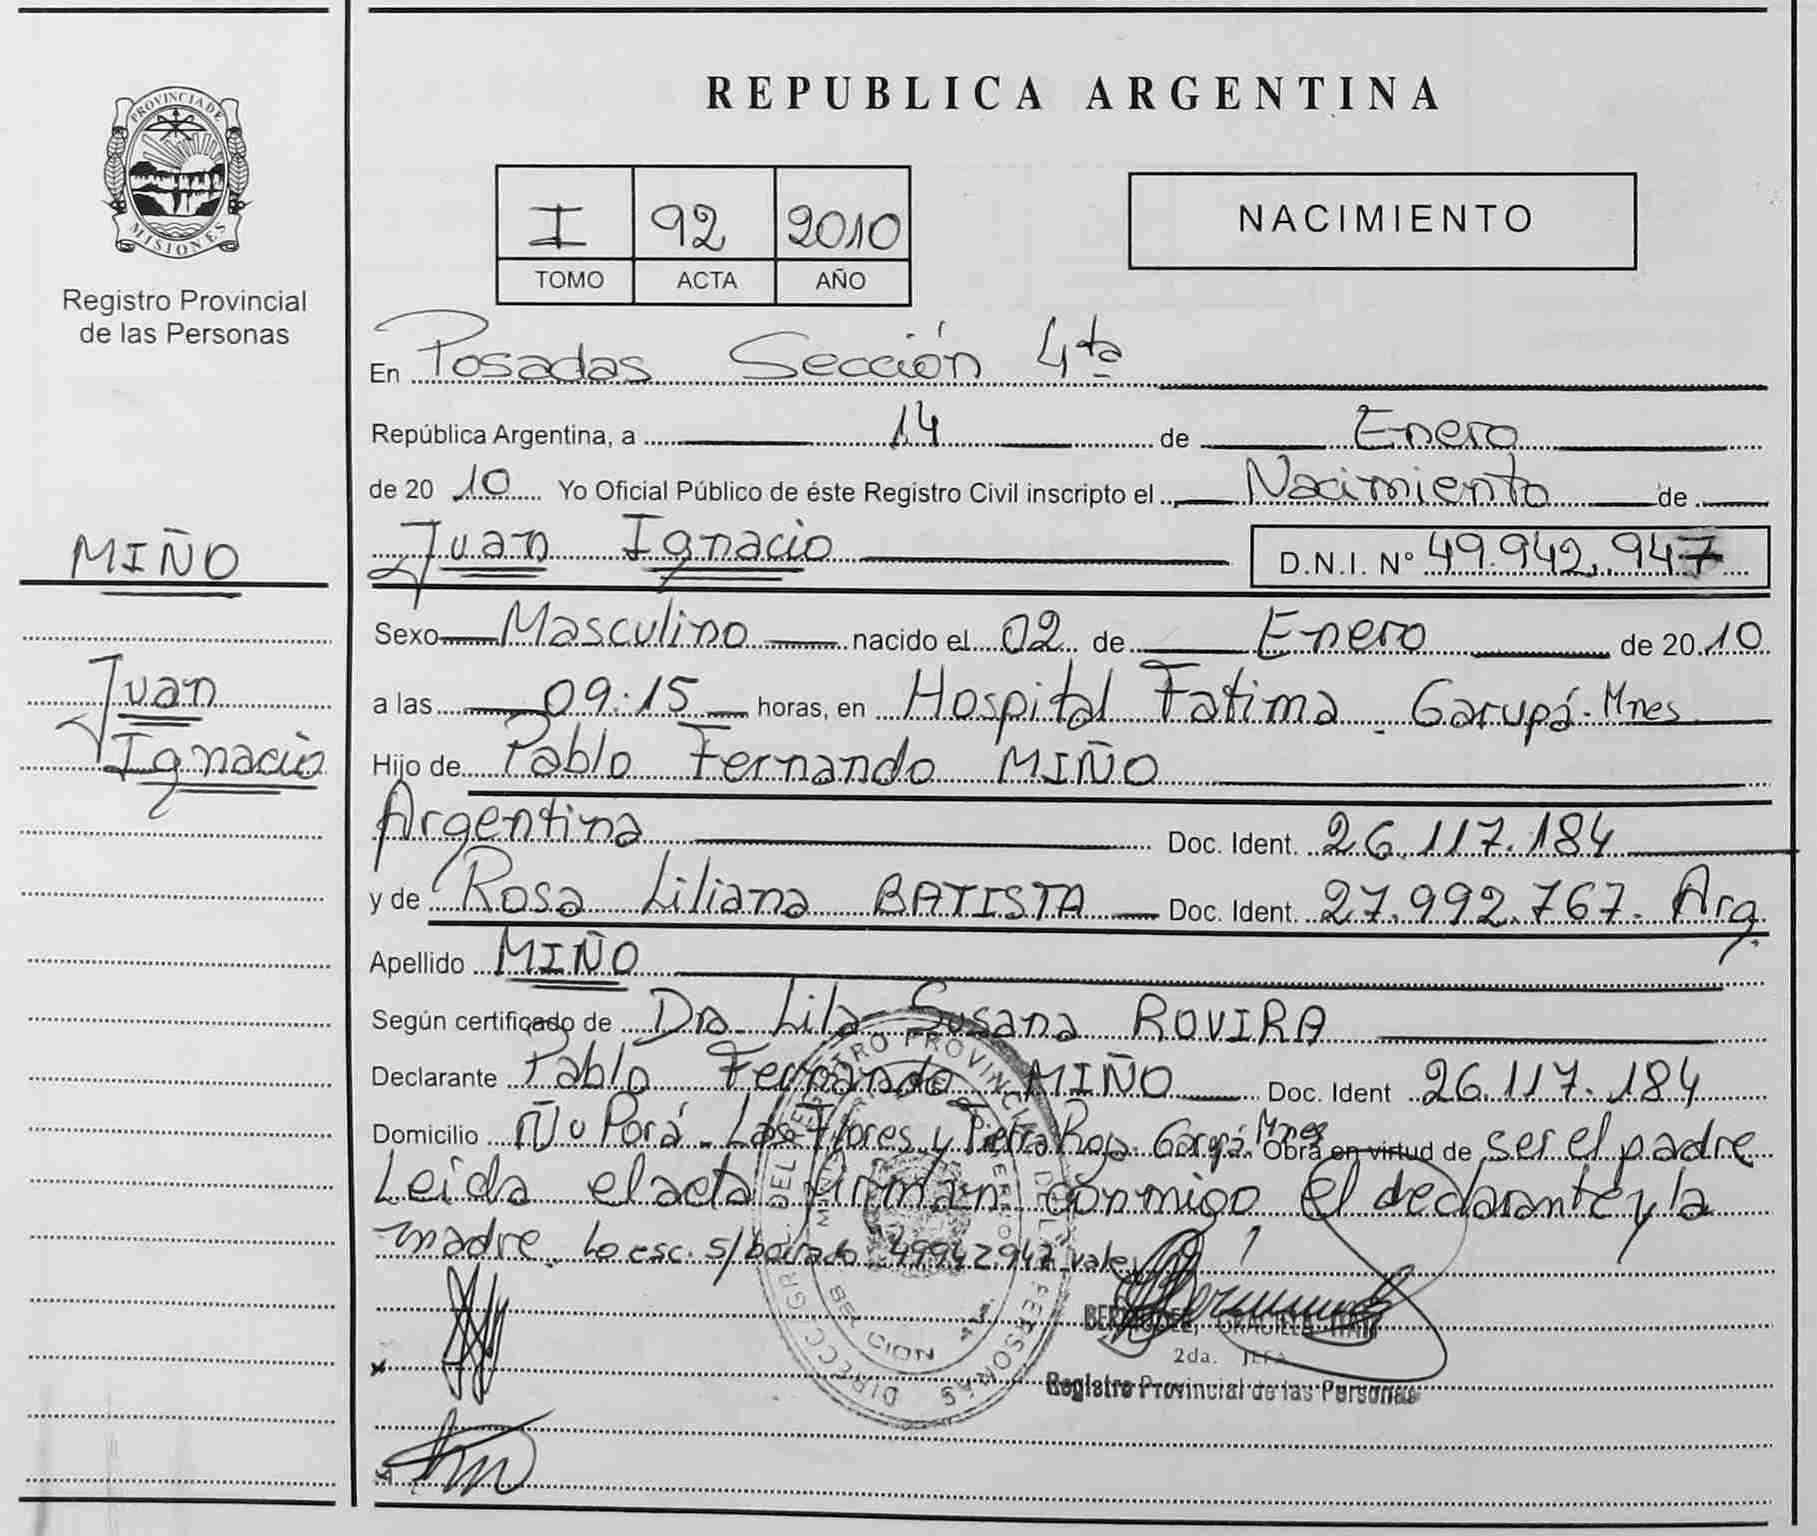 REPUBLICA ARGENTINA
PROVINCIA DE
MISIONES
Registro Provincial
de las Personas
I 92 2010
TOMO ACTA AÑO
NACIMIENTO
En Posadas Sección 4ta
República Argentina, a 14 de Enero
de 2010 Yo Oficial Público de éste Registro Civil inscripto el Nacimiento de
MIÑO
Juan Ignacio D.N.I. Nº 49.942.947
Sexo Masculino nacido el 02 de Enero de 2010
Juan
Ignacio
a las 09:15 horas, en Hospital Fatima. Garupá-Mnes
Hijo de Pablo Fernando MIÑO
Argentina Doc. Ident. 26.117.184
y de Rosa Liliana BATISTA Doc. Ident. 27.992.767. Arg.
Apellido MIÑO
Según certificado de Dra. Lila Susana ROVIRA
Declarante Pablo Fernando MIÑO Doc. Ident 26.117.184
Domicilio Ñu Porá - Las Flores y Piedra Roja. Garupá. Mnes Obra en virtud de ser el padre
Leida el acta firman conmigo el declarante y la
madre. Lo esc. s/borrado 49942947 vale
2da. JEFA
Registro Provincial de las Personas